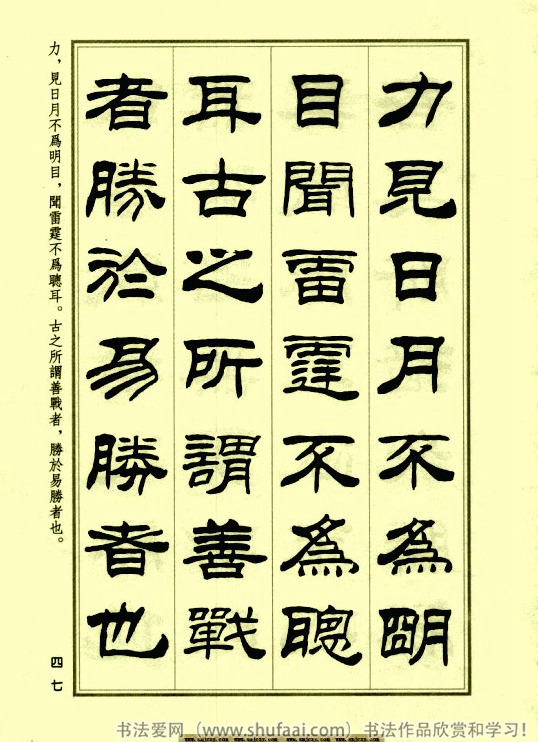 力見日月不為朙
目聞雷霆不為聰
耳古之所謂善戰
者勝於易勝者也
力，見日月不爲明目，聞雷霆不爲聰耳。古之所謂善戰者，勝於易勝者也。
四七
书法爱网（www.shufaai.com）书法作品欣赏和学习！